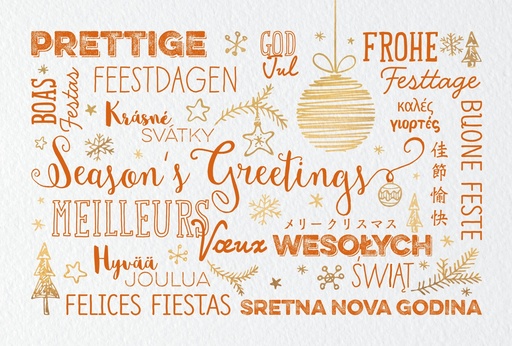 PRETTIGE
FEESTDAGEN
GOD
Jul
FROHE
Festtage
BOAS
Festas
Krásné
SVÁTKY
καλές
γιορτές
BUONE FESTE
Season's Greetings
佳節愉快
MEILLEURS
Vœux
メリークリスマス
WESOŁYCH
ŚWIĄT
Hyvää
JOULUA
FELICES FIESTAS
SRETNA NOVA GODINA